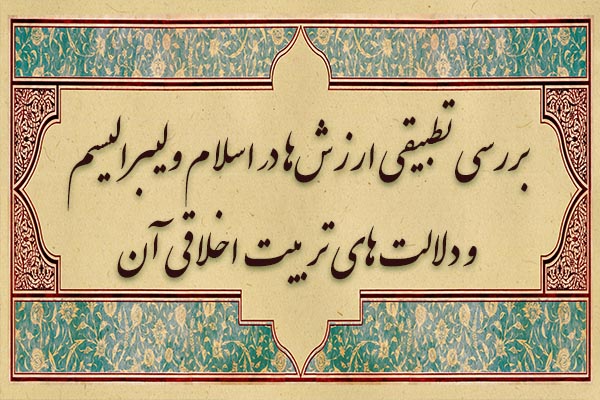 بررسی تطبیقی ارزش‌ها در اسلام و لیبرالیسم
و دلالت‌های تربیت اخلاقی آن